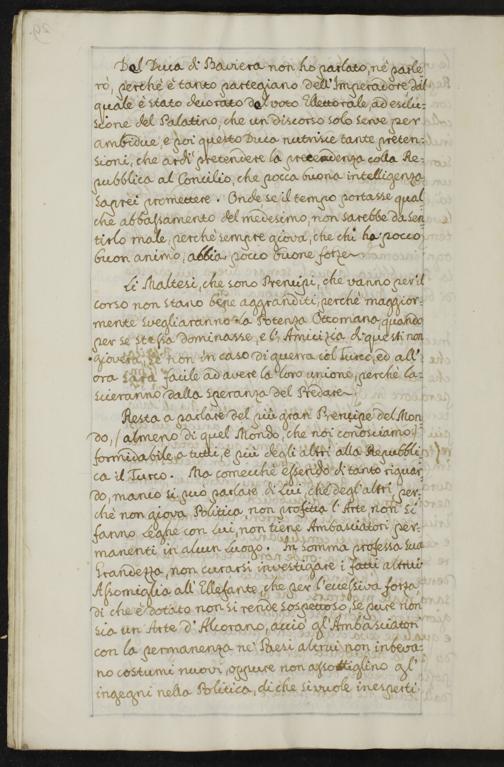 29.
Del Duca di Baviera non hò parlato, nè parle
rò, perchè è tanto partegiano dell'Imperadore dal
quale è stato decorato del voto Elettorale, ad esclu-
sione del Palatino, che un discorso solo serve per
ambidue, e poi questo Duca nutrisce tante preten-
sioni, che ardì pretendere la precedenza colla Re-
pubblica al Concilio, che pocca buona intelligenza
saprei promettere. Onde se il tempo portasse qual
che abbassamento del medesimo, non sarebbe da sen-
tirlo male, perchè sempre giova, che chi ha pocco
buon animo, abbia pocco buone forze.
Li Maltesi, che sono Prencipi, che vanno per il
corso non stano bene aggranditi, perchè maggior-
mente svegliaranno la Potenza Ottomana, quando
per se stessa dominasse, e l'Amicizza di questi non
giova, se non in caso di guerra col Turco, ed all'
ora sarà facile ad avere la loro unione, perchè la-
scieranno dalla speranza del Predare.
Resta a parlare del più gran Prencipe del Mon-
do, (almeno di quel Mondo, che noi conosciamo)
formidabile a tutti, e più degli altri alla Repubbli
ca il Turco. Ma comecchè essendo di tanto riguar-
do, manco si può parlare di Lui, che degl'altri, per-
chè non giova Politica, non profitta l'Arte non si
fanno Leghe con Lui, non tiene Ambasciatori per-
manenti in alcun Luogo. In somma professa sua
Grandezza, non curarsi investigare i fatti altrui
Assomiglia all'Ellefante, che per l'eccessiva forza
di che è dotato non si rende sospettoso, se pure non
sia un Arte d'Alcorano, acciò gl'Ambasciatori
con la permanenza ne' Paesi altrui non inbeva-
no costumi nuovi, oppure non assottiglino gl'
ingegni nella Politica, di che si vuole inesperti